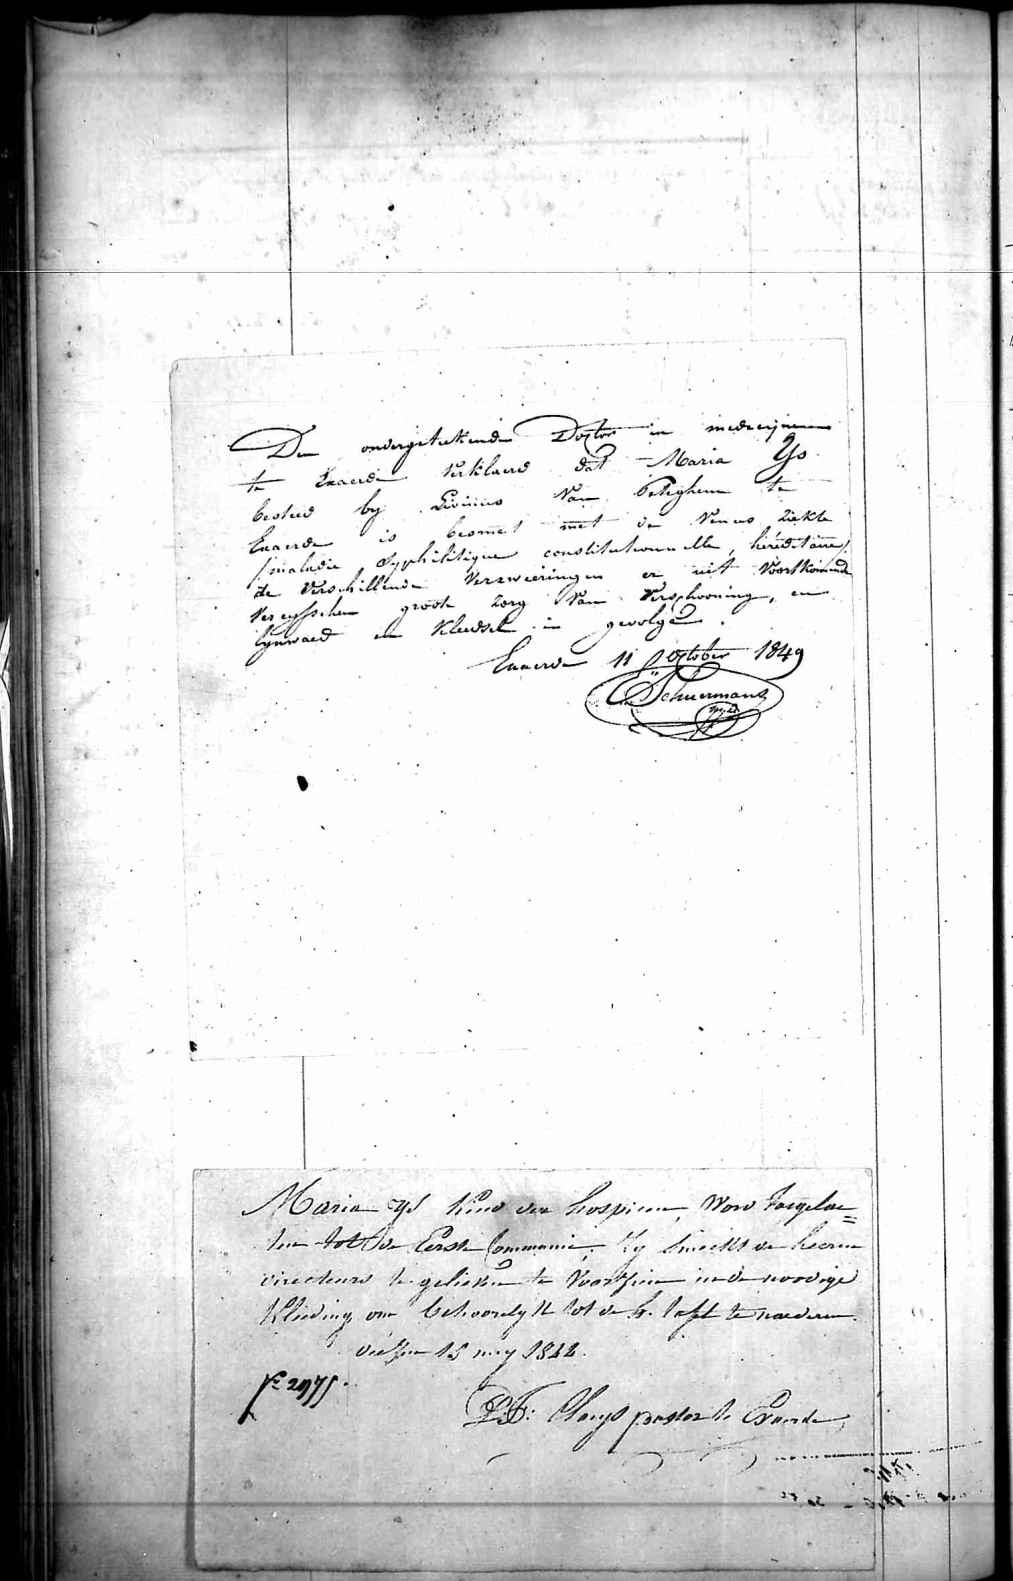 De ondergeteekende Doctor in medecijnen
te Exaerde verklaerd dat Maria Ys
besteed by Livinus Van Peteghem te
Exaerde is besmet met de Venus ziekte
(maladie syphilitique constitutionnelle, héréditaire)
de verschillende verzweeringen er uit voortkomende
vereysschen groote zorg van verschooning, en
lynwaed en kleedsel in gevolge.
Exaerde 11 October 1849
Schuermans
Maria Ys kind der hospicen, word toegelae=
ten tot de Eerste Communie; hy smeekt de heeren
directeurs te gelieven te voorzien in de noodige
kleeding om behoorelyk tot de H. tafel te naederen.
dezen 15 mey 1844.
N.º 2975.
P.F. Claeys pastor te Exaerde